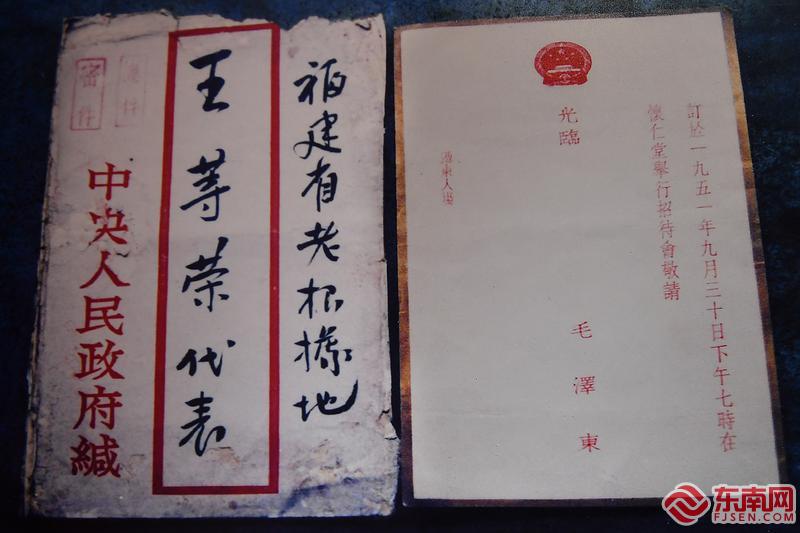 福建省老根據地
王荨荣代表
密件
中央人民政府緘
訂於一九五一年九月三十日下午七時在
懷仁堂舉行招待會敬請
光臨
毛澤東
憑柬入場
东南网
FJSEN.COM